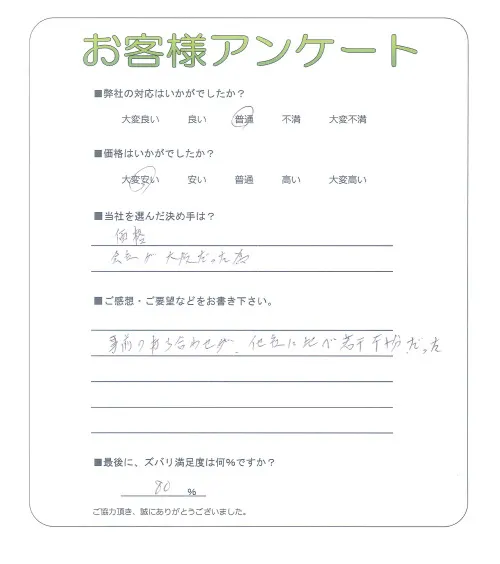 お客様アンケート
■弊社の対応はいかがでしたか？
大変良い 良い 普通 不満 大変不満
■価格はいかがでしたか？
大変安い 安い 普通 高い 大変高い
■当社を選んだ決め手は？
価格
が大阪だった為
■ご感想・ご要望などをお書き下さい。
事前の打ち合わせが、他社に比べ若干だった
■最後に、ズバリ満足度は何％ですか？
80 ％
ご協力頂き、誠にありがとうございました。